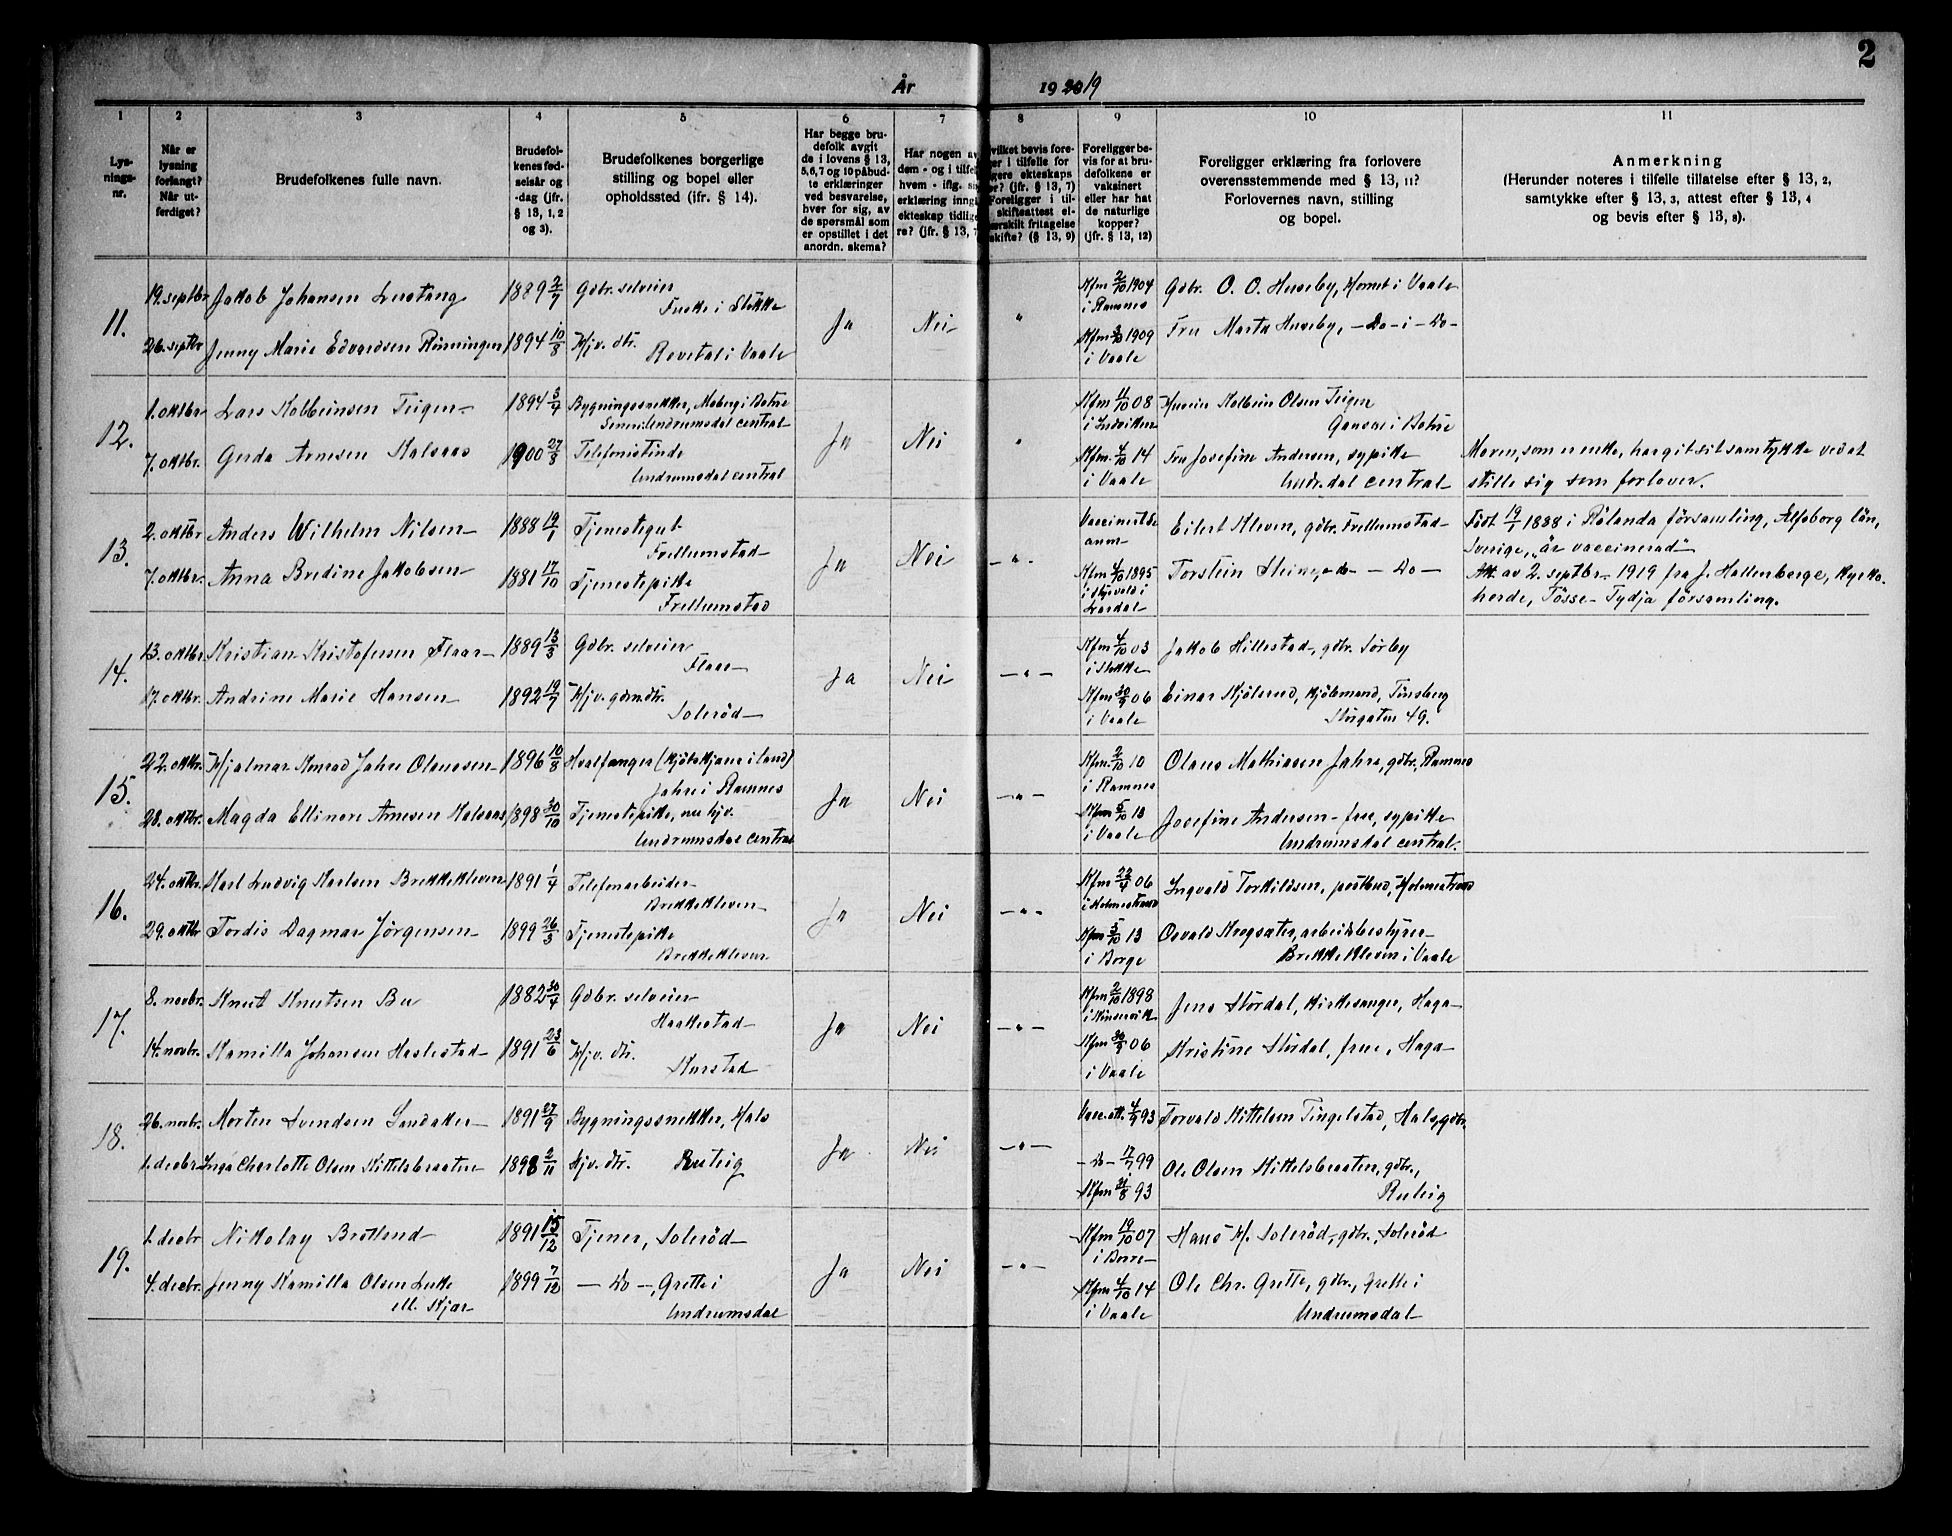 2
År 192019
1 2 3 4 5 6 7 8 9 10 11
Lys-
nings-
nr.
Når er
lysning
forlangt?
Når ut-
ferdiget?
Brudefolkenes fulle navn.
Brudefol-
kenes fød-
selsår og
-dag (jfr.
§ 13, 1, 2
og 3).
Brudefolkenes borgerlige
stilling og bopel eller
opholdssted (ifr. § 14).
Har begge bru-
defolk avgit
de i lovens § 13,
5, 6, 7 og 10 påbud-
te erklæringer
ved besvarelse,
hver for sig, av
de spørsmål som
er opstillet i det
anordn. skema?
Har nogen av
dem - og i tilfel
hvem - iflg. si
erklæring inngå
ekteskap tidlige
re? (jfr. § 13, 7
vilket bevis fore-
ger i tilfelle for
igere ekteskaps
ør? (jfr. § 13, 7)
Foreligger i til-
skifteattest el-
ærskilt fritagelse
skifte? (§ 13, 9)
Foreligger be-
vis for at bru-
defolkene er
vaksinert
eller har hat
de naturlige
kopper?
(jfr. § 13, 12)
Foreligger erklæring fra forlovere
overensstemmende med § 13, 11?
Forlovernes navn, stilling
og bopel.
Anmerkning
(Herunder noteres i tilfelle tillatelse efter § 13, 2,
samtykke efter § 13, 3, attest efter § 13, 4
og bevis efter § 13, 8).
11.
19. septbr Jakob Johansen 1889 2/7 Gdbr. selveier
i Stokke
26. septbr Jenny Marie Edvardsen Rønningen 1894 10/8 Hjv. dtr.
Revetal i Vaale
Ja Nei "
Kfm 2/10 1904
i Ramnes
Kfm 3/10 1909
i Vaale
Gdbr. O. O. Huseby, i Vaale
Fru Marta Huseby, – Do – i – Do –
12.
1. oktbr Lars Kolbeinsen Teigen 1894 3/4 Bygningssnekker, Moberg i Botne
Undrumsdal central
7. oktbr. Gerda Arnesen Halsaas 1900 27/3 Telefonistinde
Undrumsdal central
Ja Nei "
Kfm 11/10 08
i Indviken
Kfm. 4/10 14
i Vaale
Kolbein Olsen Teigen
i Botne
Fru Josefine Andersen, sypike
Undr.dal central
Moren, som er enke, har git sit samtykke ved at
stille sig som forlover.
13.
2. oktbr Anders Wilhelm Nilsen 1888 19/1 Tjenestegut
Frellumstad
7. oktbr. Anna Bredine Jakobsen 1881 17/10 Tjenestepike
Frellumstad
Ja Nei – " –
anm
Kfm 4/10 1895
i
Lardal
Eilert Kleven, gdbr. Frellumstad
Torstein – do – – Do –
Født 19/1 1888 i Rölanda församling, Älfsborg län,
Sverige, "är vaccinerad"
Att. av 2. septbr. 1919 fra J. Hallenberge, Kyrko-
herde, Tösse – Tydja församling.
14.
13. oktbr Kristian Kristofersen Flaar 1889 13/3 Gdbr. selveier
Flaar
17. oktbr. Andrine Marie Hansen 1892 19/7 Hjv. gdm.dtr.
Solerød
Ja Nei – " –
Kfm 4/10 03
i Stokke
Kfm 30/9 06
i Vaale
Jakob Hillestad, gdbr. Sørby
Einar Kjølerud, kjøbmand, Tønsberg
49.
15.
22. oktbr. Hjalmar Konrad Jahre Olaussen 1896 10/8 Hvalfanger (i land)
Jahre i Ramnes
28. oktbr. Magda Ellinore Arnesen Halsaas 1898 30/10 Tjenestepike, nu hjv.
Undrumsdal central
Ja Nei – " –
Kfm. 2/10 10
i Ramnes
Kfm 5/10 13
i Vaale
Olaus Mathiassen Jahre, gdbr., Ramnes
Josefine Andersen – frue, sypike
Undrumsdal central.
16.
24. oktbr. Karl Ludvig Karlsen Brekkekleven 1891 1/4 Telefonarbeider
Brekkekleven
29. oktbr Tordis Dagmar Jørgensen 1899 26/3 Tjenestepike
Brekkekleven
Ja Nei – " –
Kfm 22/4 06
i Holmestrand
Kfm 5/10 13
i Borge
Ingvald Torkildsen, postbud, Holmestrand
Osvald Krogsæter, arbeidsbestyrer
Brekkekleven i Vaale
17.
8. novbr. Knut Knutsen Bu 1882 30/4 Gdbr. selveier
Haakestad
14. novbr. Kamilla Johansen Heslestad 1891 23/6 Hjv. dtr.
Ja Nei – " –
Kfm 2/10 1898
i Kinservik
Kfm 30/9 06
i Vaale
Jens Stordal, Kirkesanger, Haga
Kristine Stordal, frue, Haga
18.
26. novbr. Morten Svendsen Sandaker 1891 27/9 Bygningssnekker, Hals
1. decbr Inga Charlotte Olsen Kittelsbraaten 1898 2/11 Hjv. dtr. Ruteig
Ja Nei – " –
Vacc. att. 4/9 93
– Do – 17/7 99
Kfm 31/8 93
Torvald Kittelsen Tingelstad, Hals, gdbr.
Ole Olsen Kittelsbraaten, gdbr.,
Ruteig
19.
1. decbr Nikolay Bretlend 1891 15/12 Tjener, Solerød
4. decbr. Jenny Kamilla Olsen Lette 1899 7/12 – Do –, Grette i
ell. Kjær Undrumsdal
Ja Nei – " –
Kfm 19/10 07
i Borre
Kfm 4/10 14
i Vaale
Hans M. Solerød, gdbr., Solerød
Ole Chr. Grette, gdbr., Grette i
Undrumsdal